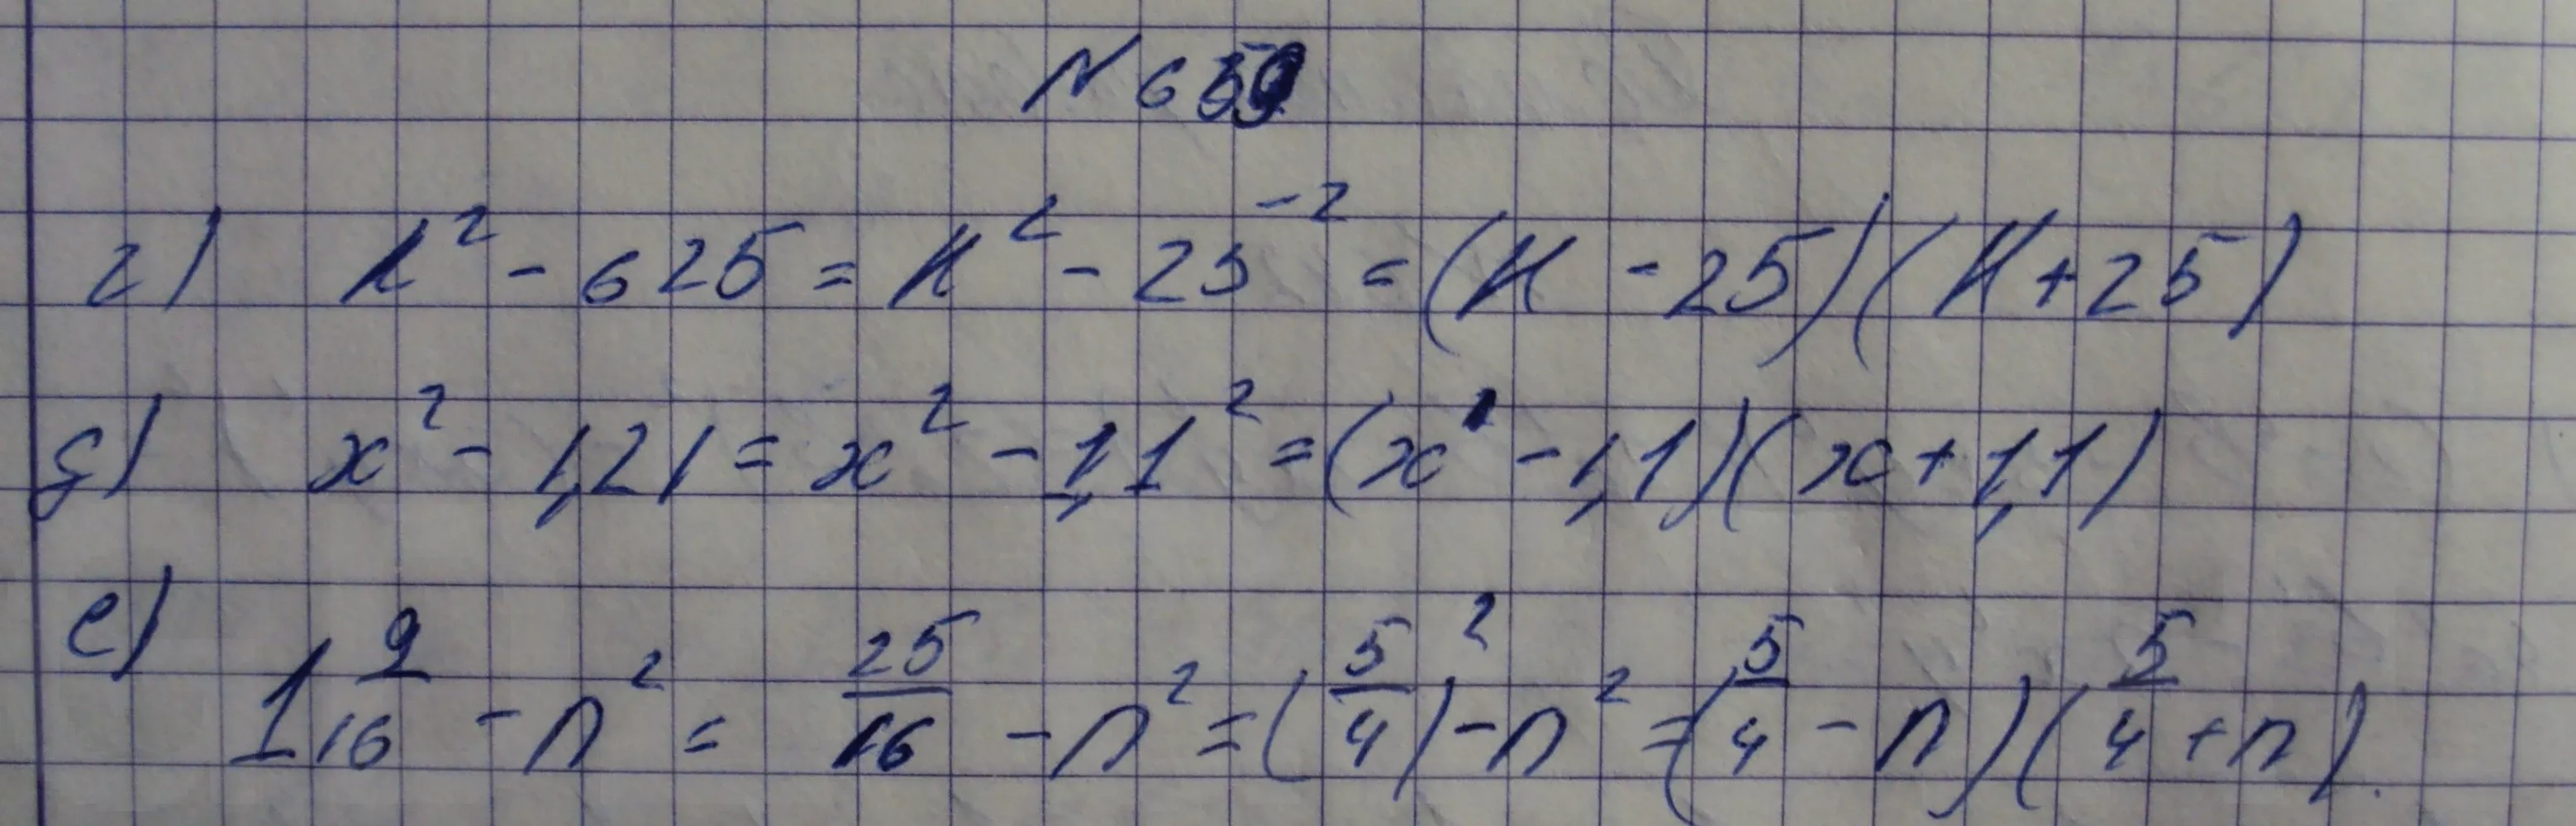 N 659
г) k² - 625 = k² - 25⁻² = (k - 25)(k + 25)
д) x² - 1,21 = x² - 1,1² = (x - 1,1)(x + 1,1)
е) 1 9/16 - n² = 25/16 - n² = (5/4)² - n² = (5/4 - n)(5/4 + n).